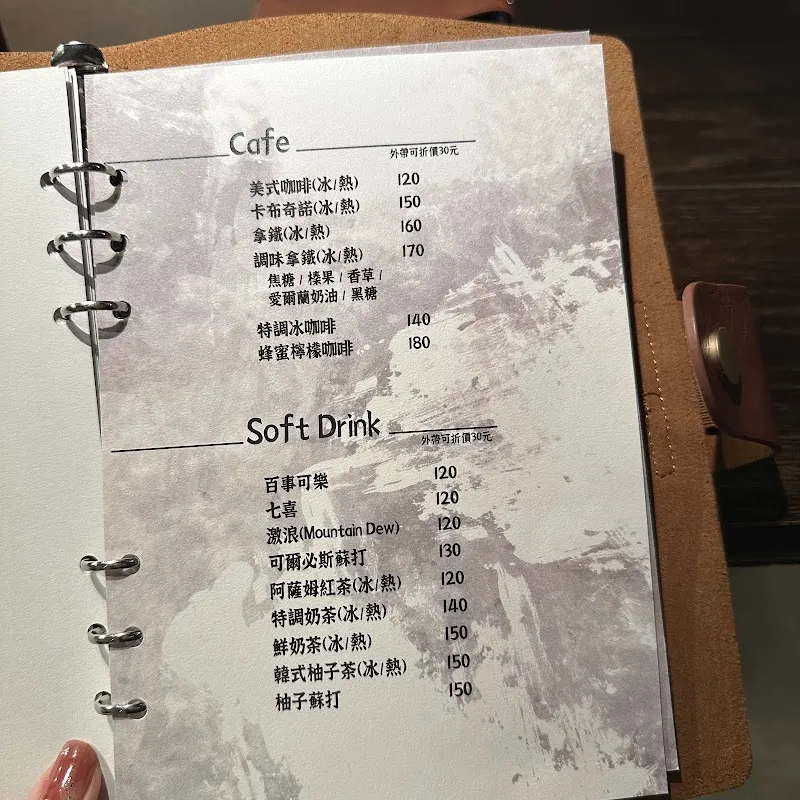 Cafe
外帶可折價30元
美式咖啡(冰/熱) 120
卡布奇諾(冰/熱) 150
拿鐵(冰/熱) 160
調味拿鐵(冰/熱) 170
焦糖 / 榛果 / 香草 /
愛爾蘭奶油 / 黑糖
特調冰咖啡 140
蜂蜜檸檬咖啡 180
Soft Drink
外帶可折價30元
百事可樂 120
七喜 120
激浪(Mountain Dew) 120
可爾必斯蘇打 130
阿薩姆紅茶(冰/熱) 120
特調奶茶(冰/熱) 140
鮮奶茶(冰/熱) 150
韓式柚子茶(冰/熱) 150
柚子蘇打 150